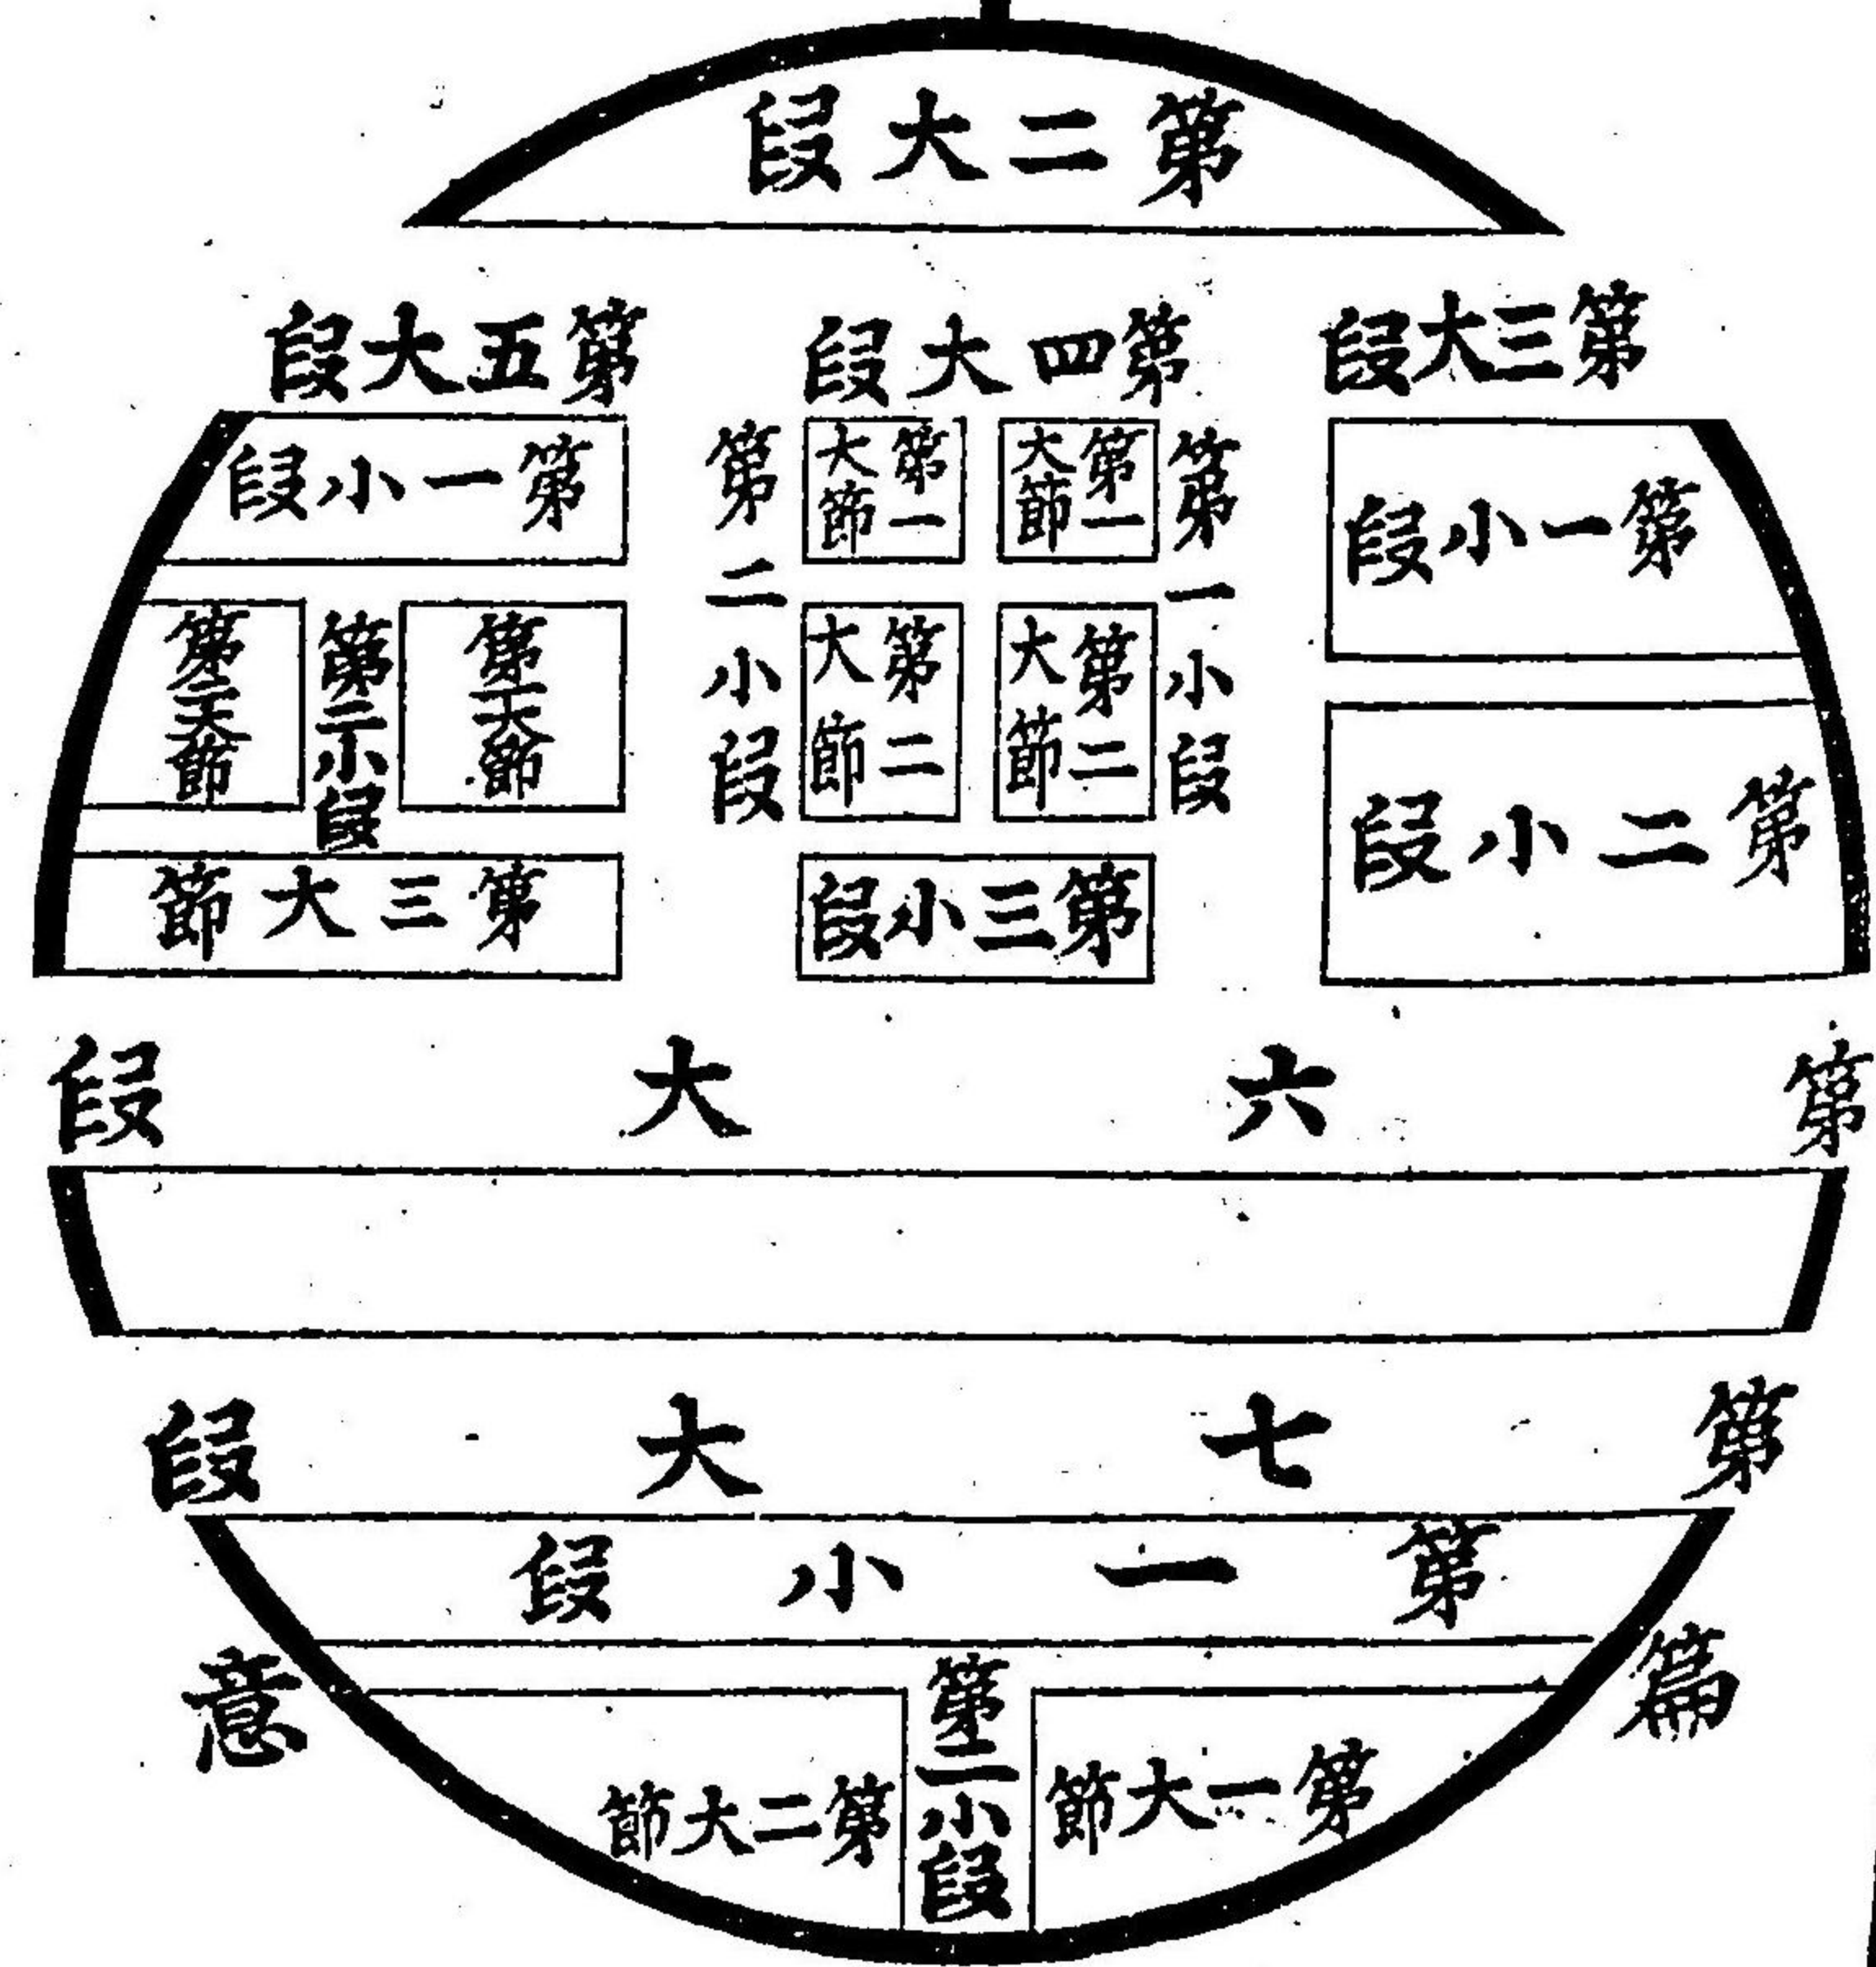 第二大段
第三大段
第一小段
第二小段
第四大段
第一小段
第一大節
第二大節
第二小段
第一大節
第二大節
第三小段
第五大段
第一小段
第二小段
第一大節
第二大節
第三大節
第六大段
第七大段
第一小段
第二小段
第一大節
第二大節
篇意